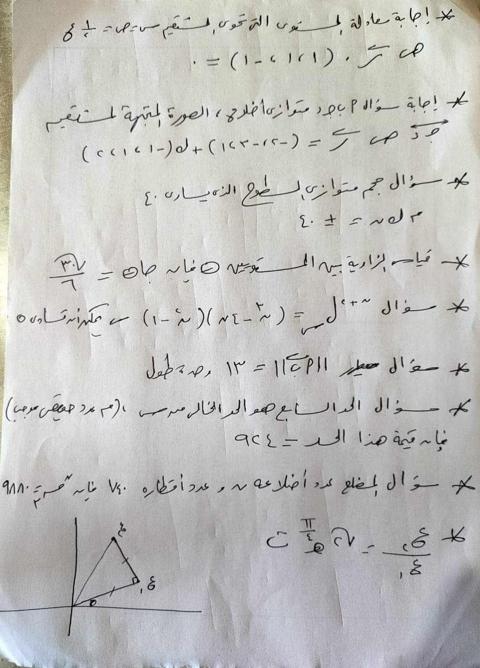 * إجابة معادلة المستوى التي تحوى المستقيم س = ص = ½ ع
هى ر⃗ . (١ ، ١ ، -١) = ٠
* إجابة سؤال ٢ ب ج د متوازى أضلاع ، الصورة المتجهة لمستقيم
ج د هى ر⃗ = (-٢ ، -٣ ، ١) + ك (-١ ، ١ ، ٢)
* سؤال حجم متوازى السطوح الذى يساوى ٤٠
م = ± ٤٠
* قياس الزاوية بين المستويين ه فإن جا ه = √٣٠ / ٦
* سؤال ل = (ن٣ - ٤ن)(ن٢ - ١) يمكن أن تساوى ٥
* سؤال ||أ ب|| = ١٣ وحدة طول
* سؤال الحد السابع هو الحد الخالى من س ، (م عدد حقيقى موجب)
فإن قيمة هذا الحد = ٩٢٤
* سؤال المضلع عدد أضلاعه ن وعدد أقطاره ٧٤٠ فإن = ٩٨٨٠
* ع٢ / ع١ = √٢ ه π/٤ ت
ع٢
ع١